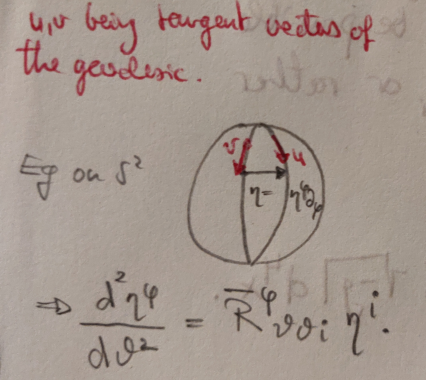 u,v being tangent vectors of
the geodesic.
Eg on S²
v u
η = η^φ ∂_φ
⇒ d²η^φ / dϑ² = R̅^φ_ϑϑi η^i.